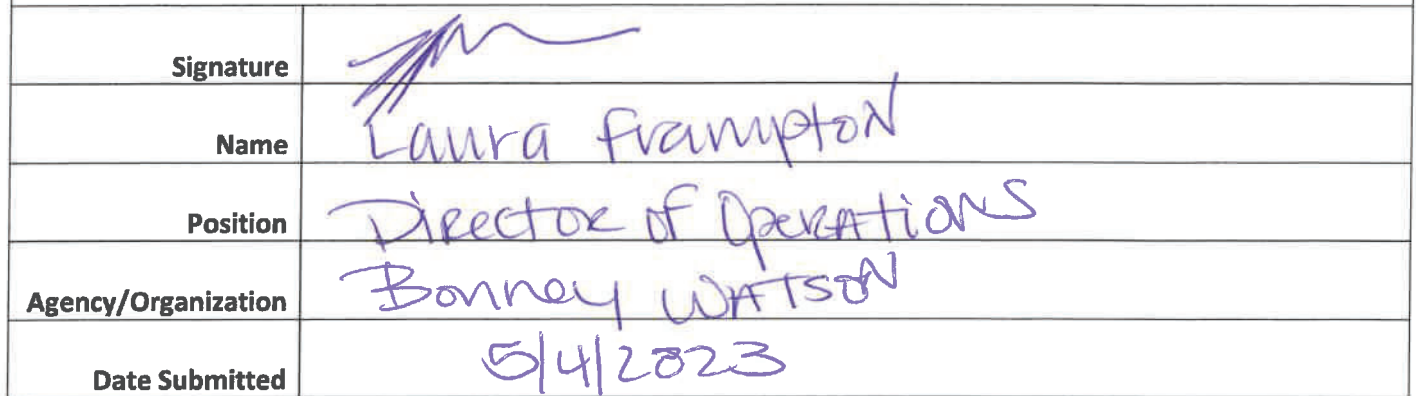 Signature
Name Laura Frampton
Position Director of Operations
Agency/Organization Bonney Watson
Date Submitted 5/4/2023